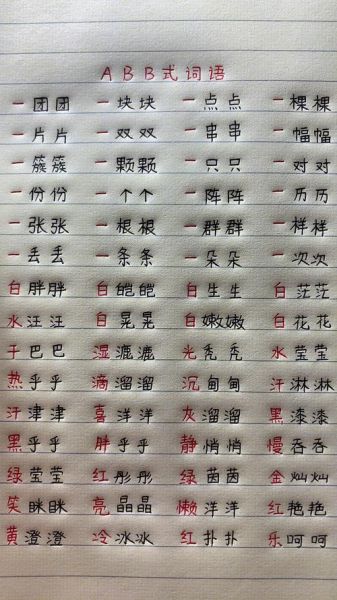 ABB式词语
一团团 一块块 一点点 一棵棵
一片片 一双双 一串串 一幅幅
一簇簇 一颗颗 一只只 一对对
一份份 一个个 一阵阵 一历历
一张张 一根根 一群群 一样样
一丢丢 一条条 一朵朵 一次次
白胖胖 白皑皑 白生生 白茫茫
水汪汪 白晃晃 白嫩嫩 白花花
干巴巴 湿漉漉 光秃秃 水莹莹
热乎乎 滴溜溜 沉甸甸 汗淋淋
汗津津 喜洋洋 灰溜溜 黑漆漆
黑乎乎 胖乎乎 静悄悄 慢吞吞
绿莹莹 红彤彤 绿茵茵 金灿灿
笑眯眯 亮晶晶 懒洋洋 红艳艳
黄澄澄 冷冰冰 红扑扑 乐呵呵